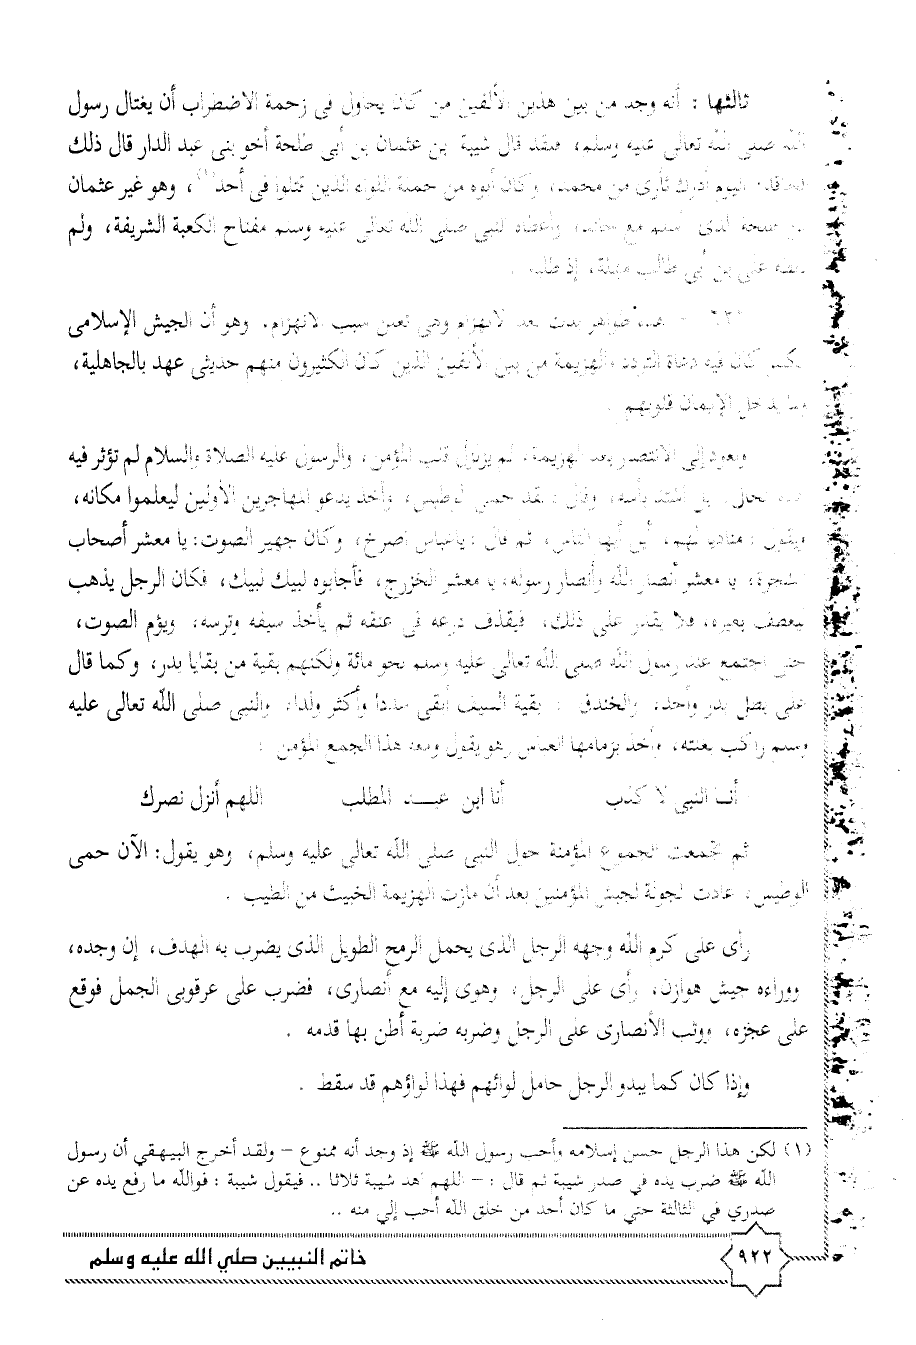 ثالثها : أنه وجد من بين هذين الألفين من كان يحاول فى زحمة الاضطراب أن يغتال رسول
الله صلى الله تعالى عليه وسلم، فقد قال شيبة بن عثمان بن أبى طلحة أخو بنى عبد الدار قال ذلك
اليوم أدرك ثأرى من محمد، وكان أبوه من حملة اللواء الذين قتلوا فى أحد(١)، وهو غير عثمان
بن طلحة الذى أسلم مع خالد، وأعطاه النبى صلى الله تعالى عليه وسلم مفتاح الكعبة الشريفة، ولم
يعطه على بن أبى طالب مثله، إذ طلبه .
هذه ظواهر بدت بعد الانهزام وهى تعلن سبب الانهزام، وهو أن الجيش الإسلامى
كان فيه دعاة التردد والهزيمة من بين الألفين الذين كان الكثيرون منهم حديثى عهد بالجاهلية،
ولما يدخل الإيمان قلوبهم .
ونعود إلى الانتصار بعد الهزيمة، لم يزلزل قلب المؤمن، والرسول عليه الصلاة والسلام لم تؤثر فيه
هذه الحال، بل اشتد بأسه، وقال : لقد حمى الوطيس، وأخذ يدعو المهاجرين الأولين ليعلموا مكانه،
ويقول : مناديا لهم، أين أيها الناس، ثم قال : ياعباس اصرخ، وكان جهير الصوت: يا معشر أصحاب
الشجرة، يا معشر أنصار الله وأنصار رسوله، يا معشر الخزرج، فأجابوه لبيك لبيك، فكان الرجل يذهب
ليعطف بعيره، فلا يقدر على ذلك، فيقذف درعه فى عنقه ثم يأخذ سيفه وترسه، ويؤم الصوت،
حتى اجتمع عند رسول الله صلى الله تعالى عليه وسلم نحو مائة ولكنهم بقية من بقايا بدر، وكما قال
على بطل بدر وأحد، والخندق : بقية السيف أبقى عددا وأكثر ولدا، والنبى صلى الله تعالى عليه
وسلم راكب بغلته، وأخذ بزمامها العباس وهو يقول ومعه هذا الجمع المؤمن :
أنا النبى لا كذب أنا ابن عبد المطلب اللهم أنزل نصرك
ثم تجمعت الجموع المؤمنة حول النبى صلى الله تعالى عليه وسلم، وهو يقول: الآن حمى
الوطيس، عادت الجولة لجيش المؤمنين بعد أن مازت الهزيمة الخبيث من الطيب .
رأى على كرم الله وجهه الرجل الذى يحمل الرمح الطويل الذى يضرب به الهدف، إن وجده،
ووراءه جيش هوازن، رأى على الرجل، وهوى إليه مع أنصارى، فضرب على عرقوبى الجمل فوقع
على عجزه، ووثب الأنصارى على الرجل وضربه ضربة أطن بها قدمه .
وإذا كان كما يبدو الرجل حامل لوائهم فهذا لواؤهم قد سقط .
(١) لكن هذا الرجل حسن إسلامه وأحب رسول الله ﷺ إذ وجد أنه ممنوع - ولقد أخرج البيهقي أن رسول
الله ﷺ ضرب يده في صدر شيبة ثم قال : - اللهم اهد شيبة ثلاثا .. فيقول شيبة : فوالله ما رفع يده عن
صدري في الثالثة حتي ما كان أحد من خلق الله أحب إلي منه ..
٩٢٢
خاتم النبيين صلي الله عليه وسلم